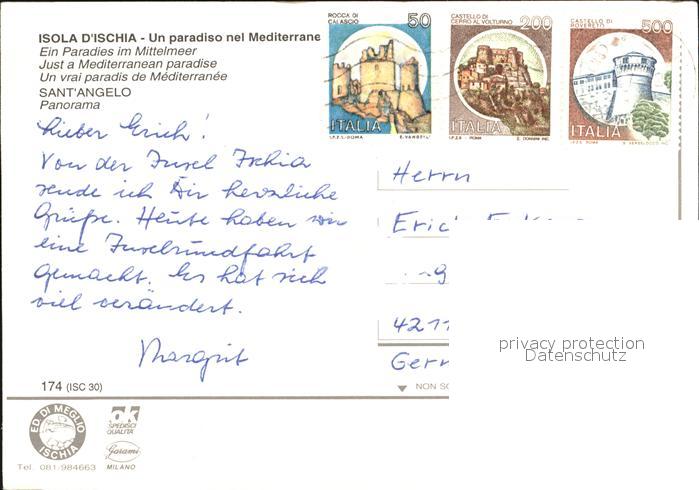 ISOLA D'ISCHIA - Un paradiso nel Mediterrane
Ein Paradies im Mittelmeer
Just a Mediterranean paradise
Un vrai paradis de Méditerranée
SANT'ANGELO
Panorama
Lieber Erich!
Von der Insel Ischia
sende ich Dir herzliche
Grüße. Heute haben wir
eine Inselrundfahrt
gemacht. Es hat sich
viel verändert.
Margrit
174 (ISC 30)
ED. DI MEGLIO
ISCHIA
Tel. 081/984663
ok
SPEDISCI
QUALITÀ
Garami
MILANO
ROCCA DI
CALASCIO
50
ITALIA
I.P.Z.S. - ROMA
CASTELLO DI
CERRO AL VOLTURNO
200
ITALIA
I.P.Z.S. ROMA
CASTELLO DI
ROVERETO
500
ITALIA
I.P.Z.S. ROMA
Herrn
Erich
4211
Gern
NON SC
privacy protection
Datenschutz